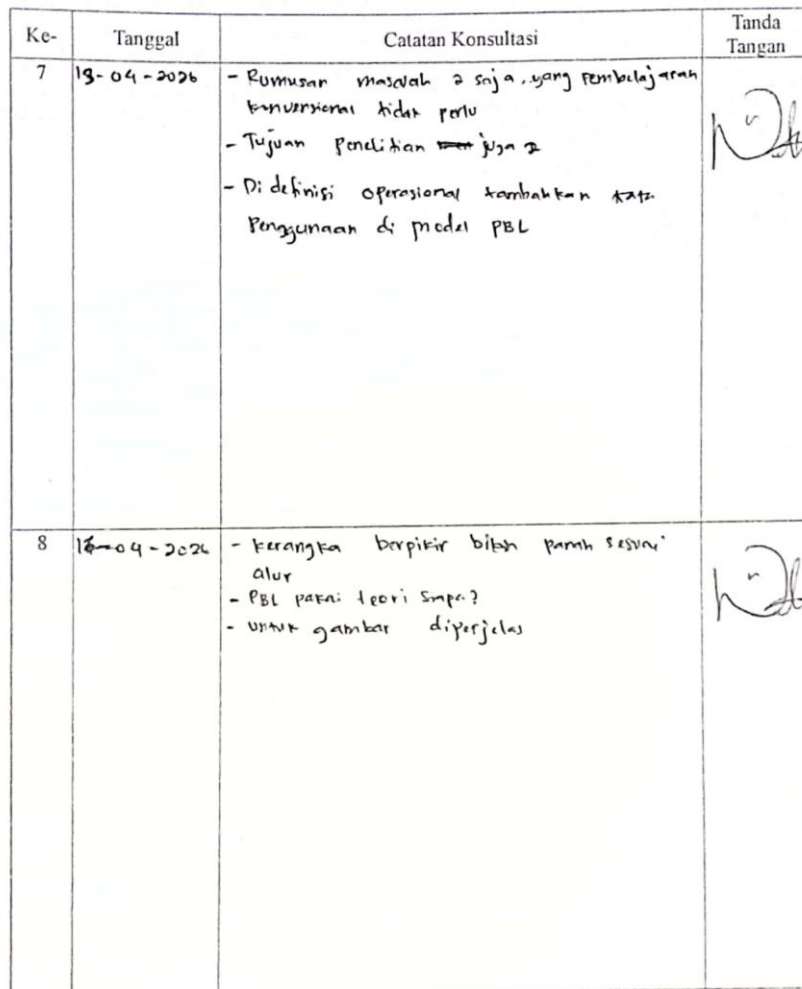 Ke- Tanggal Catatan Konsultasi Tanda Tangan
7 13-04-2026 - Rumusan masalah 2 saja, yang pembelajaran
konversional tidak perlu
- Tujuan Penelitian juga 2
- Di definisi operasional tambahkan kata
Penggunaan di model PBL
8 -04-2026 - Kerangka berpikir panah sesuai
alur
- PBL pakai teori siapa?
- Untuk gambar diperjelas